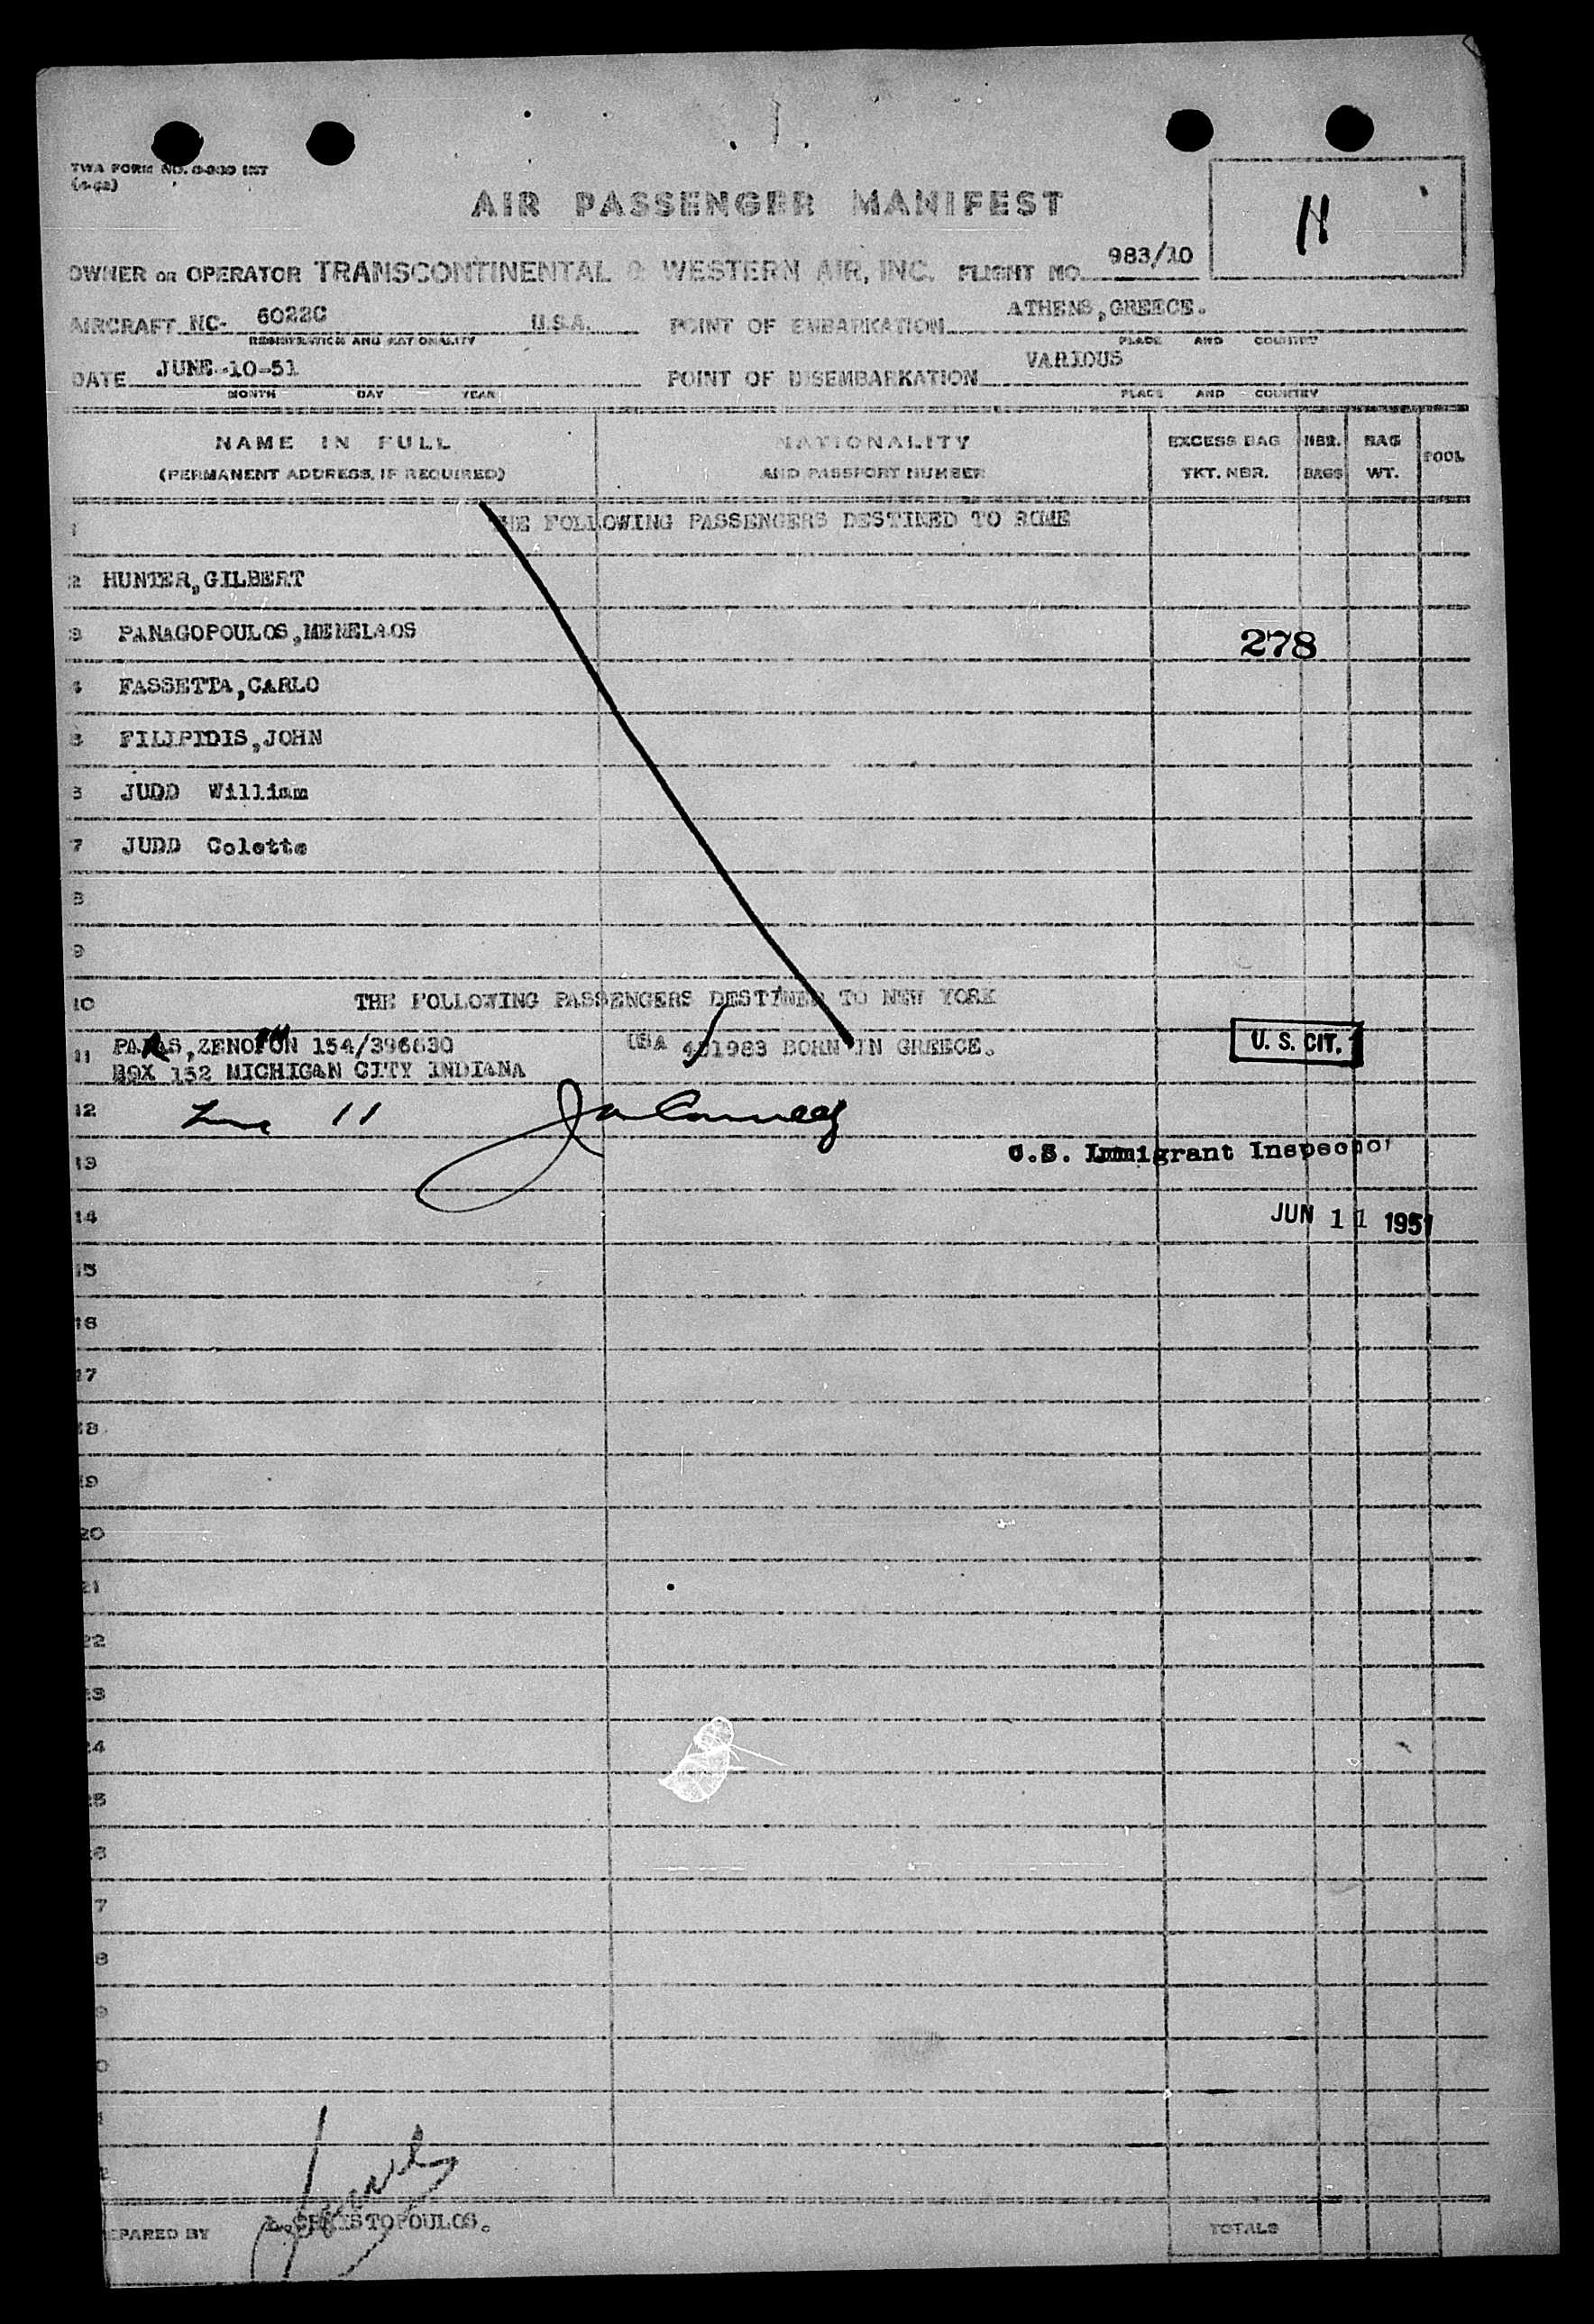 TWA FORM NO.
AIR PASSENGER MANIFEST
11
OWNER OR OPERATOR TRANSCONTINENTAL & WESTERN AIR, INC. FLIGHT NO. 983/10
AIRCRAFT NC- 6022C U.S.A. POINT OF EMBARKATION ATHENS,GREECE.
REGISTRATION AND NATIONALITY PLACE AND COUNTRY
DATE JUNE-10-51 POINT OF DISEMBARKATION VARIOUS
MONTH DAY YEAR PLACE AND COUNTRY
NAME IN FULL NATIONALITY EXCESS BAG NBR. BAG POOL
(PERMANENT ADDRESS, IF REQUIRED) AND PASSPORT NUMBER TKT. NBR. BAGS WT.
1 THE FOLLOWING PASSENGERS DESTINED TO ROME
2 HUNTER,GILBERT
3 PANAGOPOULOS,MENELAOS 278
4 FASSETTA,CARLO
5 FILIPIDIS,JOHN
6 JUDD William
7 JUDD Colette
8
9
10 THE FOLLOWING PASSENGERS DESTINED TO NEW YORK
11 ZENOPHON 154/396630 USA BORN IN GREECE. U. S. CIT. 1
BOX 152 MICHIGAN CITY INDIANA
12 Line 11
13 U.S. Immigrant Inspector
14 JUN 11 1951
15
16
17
18
19
20
21
22
23
24
25
6
7
8
9
0
PREPARED BY CHRISTOPOULOS. TOTALS